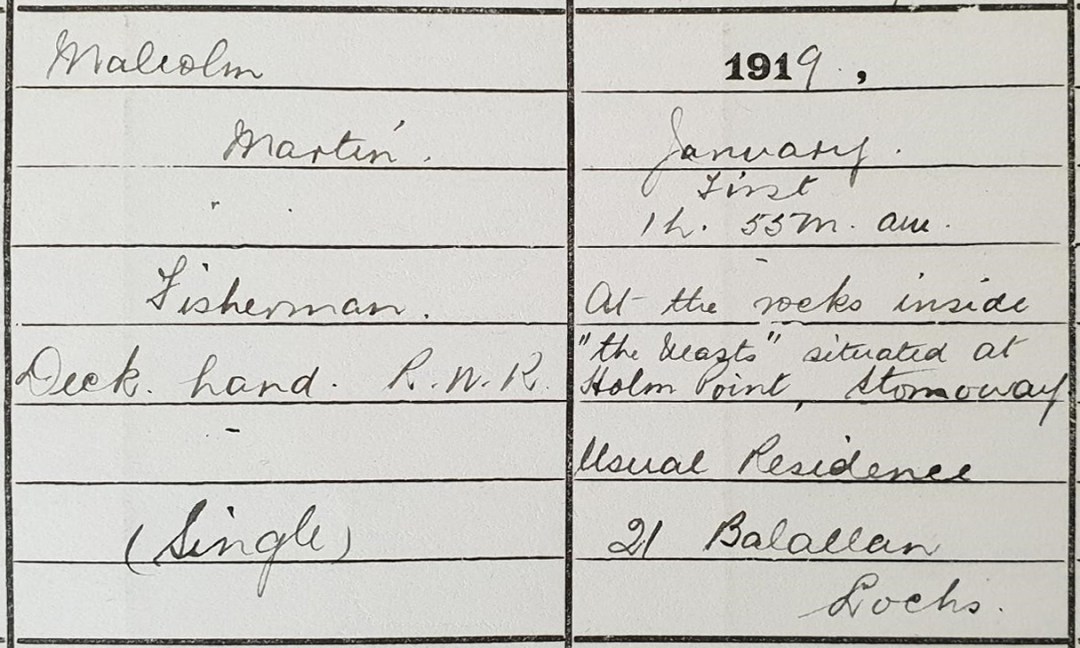 Malcolm
Martin.
Fisherman.
Deck. hand. R.N.R.
(Single)
1919,
January.
First
1h. 55m. am.
At the rocks inside
"the Beasts" situated at
Holm Point, Stornoway
Usual Residence
21 Balallan
Lochs.